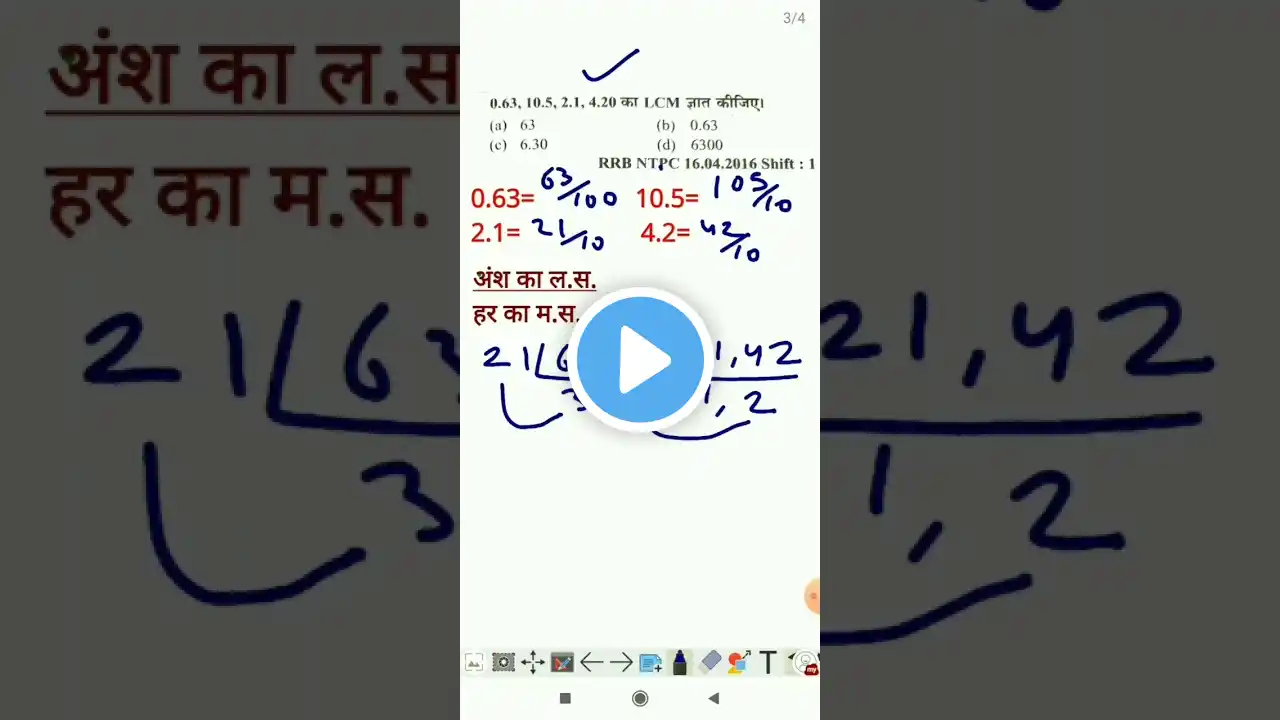 3/4
0.63, 10.5, 2.1, 4.20 का LCM ज्ञात कीजिए।
(a) 63 (b) 0.63
(c) 6.30 (d) 6300
RRB NTPC 16.04.2016 Shift : 1
0.63= 63/100 10.5= 105/10
2.1= 21/10 4.2= 42/10
अंश का ल.स.
हर का म.स.
21 6 1, 42
3 1, 2
अंश का ल.स
हर का म.स.
21 63 21, 42
3 1, 2
T